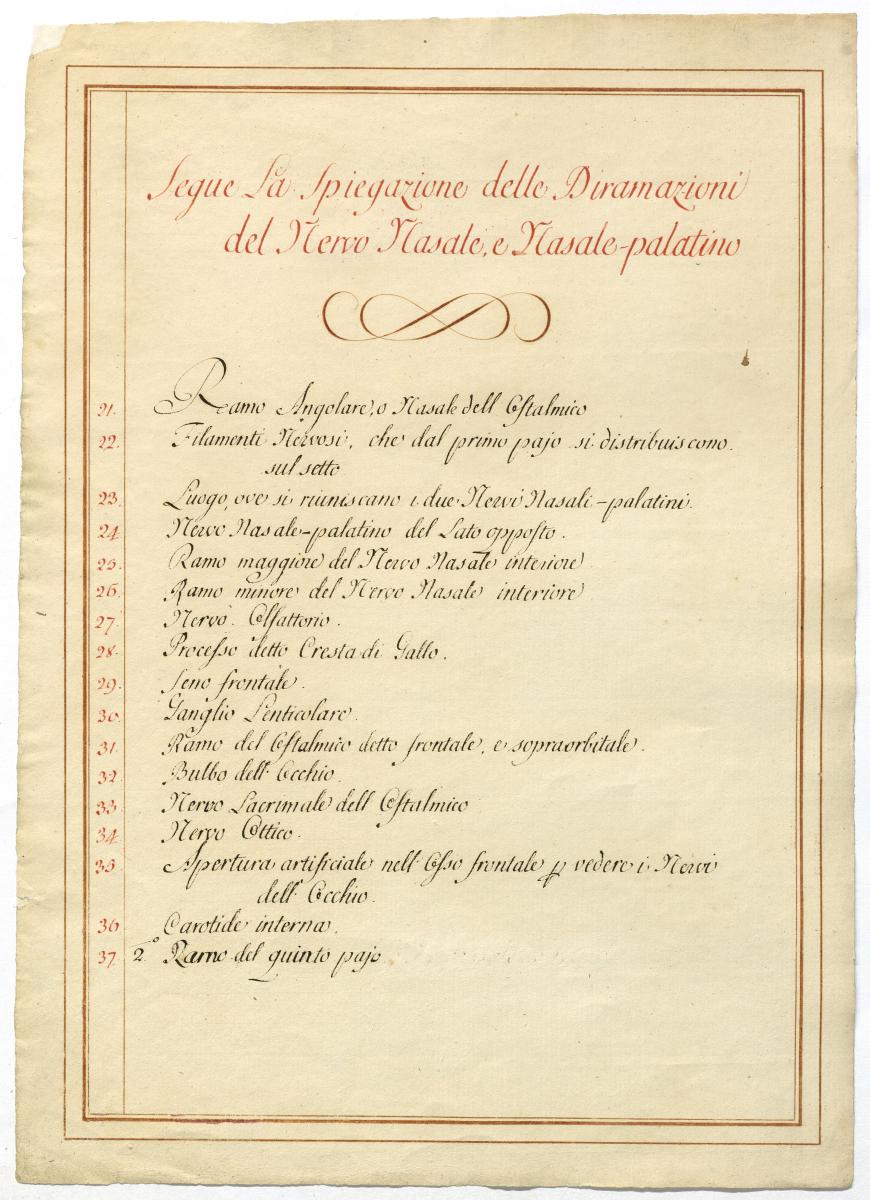 Segue La Spiegazione delle Diramazioni
del Nervo Nasale, e Nasale-palatino
21. Ramo Angolare, o Nasale dell Oftalmico
22. Filamenti Nervosi, che dal primo pajo si distribuiscono
sul setto
23. Luogo, ove si riuniscano i due Nervi Nasali-palatini.
24. Nervo Nasale-palatino del Lato opposto.
25. Ramo maggiore del Nervo Nasale interiore
26. Ramo minore del Nervo Nasale interiore
27. Nervo Olfattorio.
28. Processo detto Cresta di Gallo.
29. Seno frontale.
30. Ganglio Lenticolare.
31. Ramo del Oftalmico detto frontale, e sopraorbitale.
32. Bulbo dell' Occhio.
33. Nervo Lacrimale dell Oftalmico
34. Nervo Ottico.
35. Apertura artificiale nell' Osso frontale p vedere i Nervi
dell' Occhio.
36 Carotide interna.
37. 2.° Ramo del quinto pajo